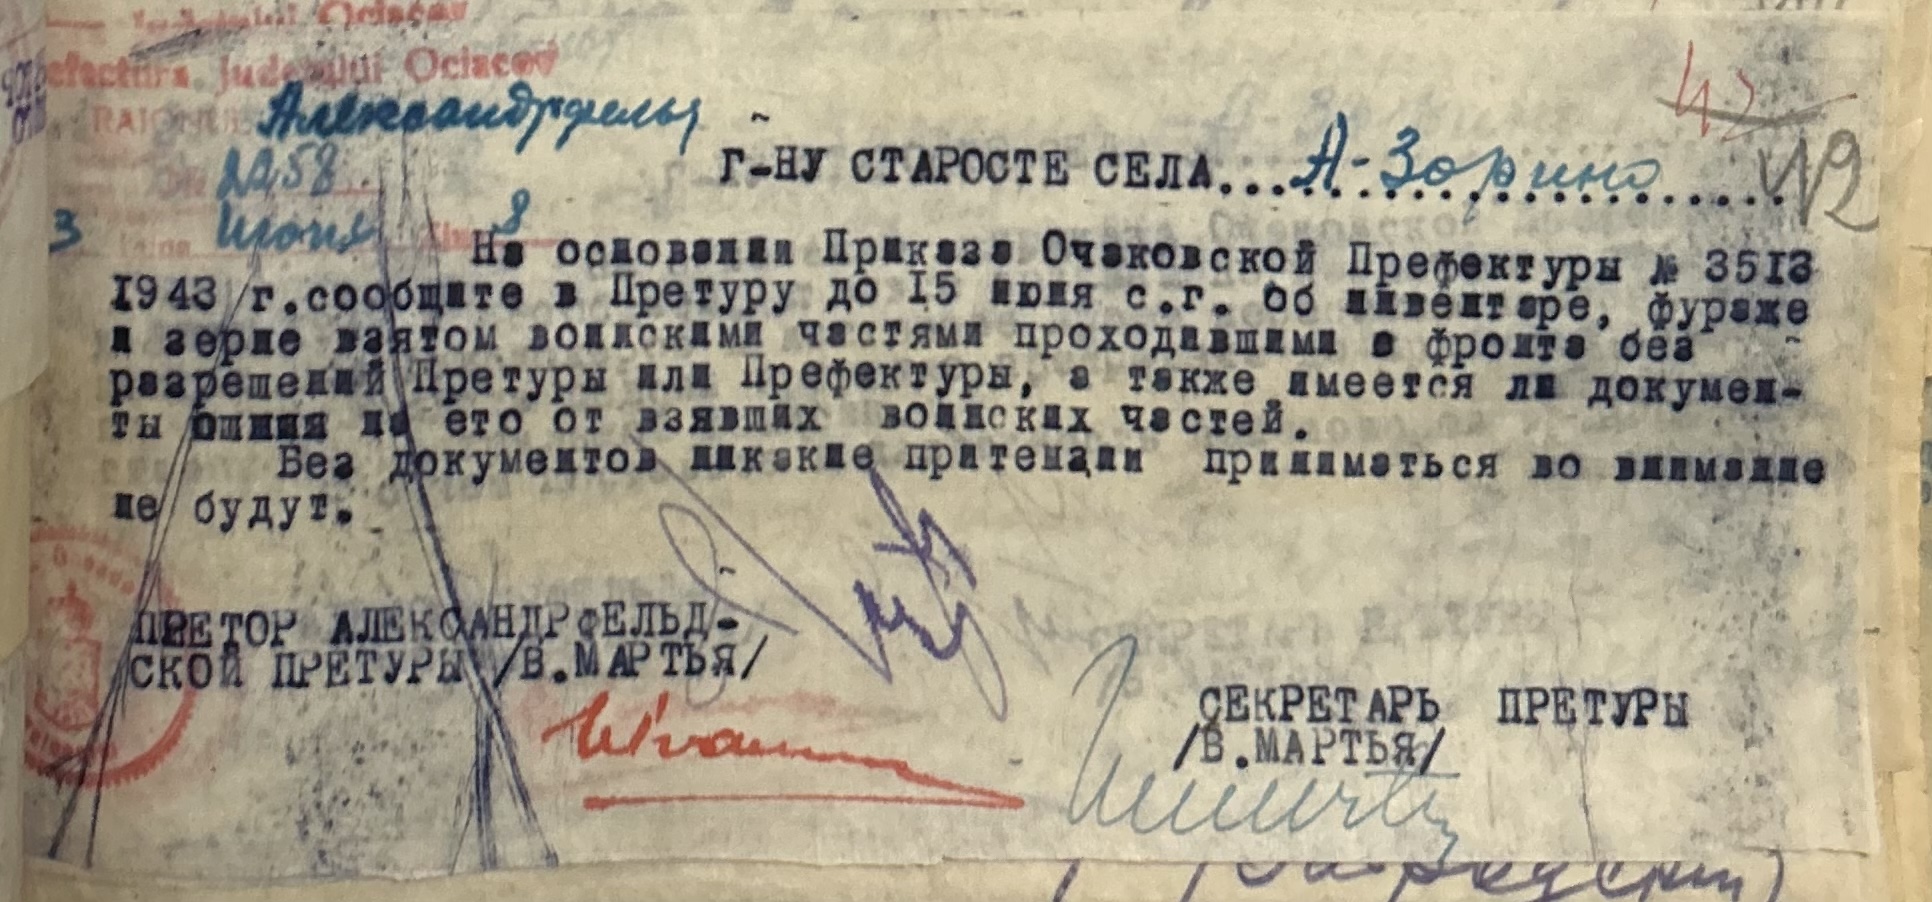 Judeţului Ociacov
Prefectura Judeţului Ociacov
RAIONUL Александрфельд
2258
3 Июня 8
42
Г-НУ СТАРОСТЕ СЕЛА....А-Зорино....
42
На основании Приказа Очаковской Префектуры № 3513
1943 г.сообщите в Претуру до 15 июня с.г. об инвентаре, фураже
и зерне взятом воинскими частями проходившими с фронта без
разрешений Претуры или Префектуры, а также имеется ли докумен-
ты на ето от взявших воинских частей.
Без документов никакие притенции приниматься во внимание
не будут.
ПРЕТОР АЛЕКСАНДРФЕЛЬД-
СКОЙ ПРЕТУРЫ /В.МАРТЬЯ/
СЕКРЕТАРЬ ПРЕТУРЫ
/В.МАРТЬЯ/